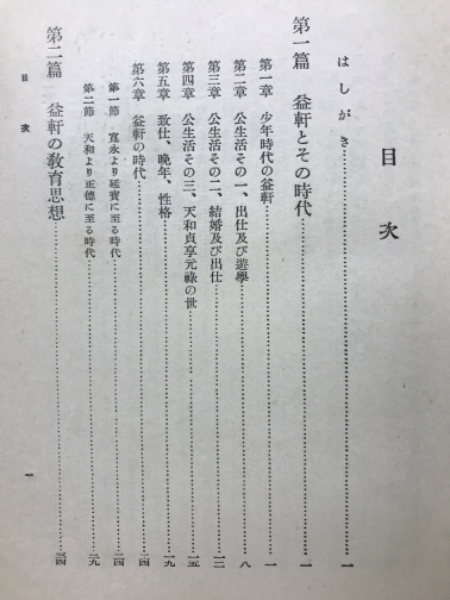 目次
はしがき……一
第一篇 益軒とその時代……一
第一章 少年時代の益軒……一
第二章 公生活その一、出仕及び遊學……八
第三章 公生活その二、結婚及び出仕……一二
第四章 公生活その三、天和貞享元祿の世……一五
第五章 致仕、晩年、性格……一九
第六章 益軒の時代……二四
第一節 寛永より延寶に至る時代……二四
第二節 天和より正德に至る時代……二九
第二篇 益軒の教育思想……三四
目次 一